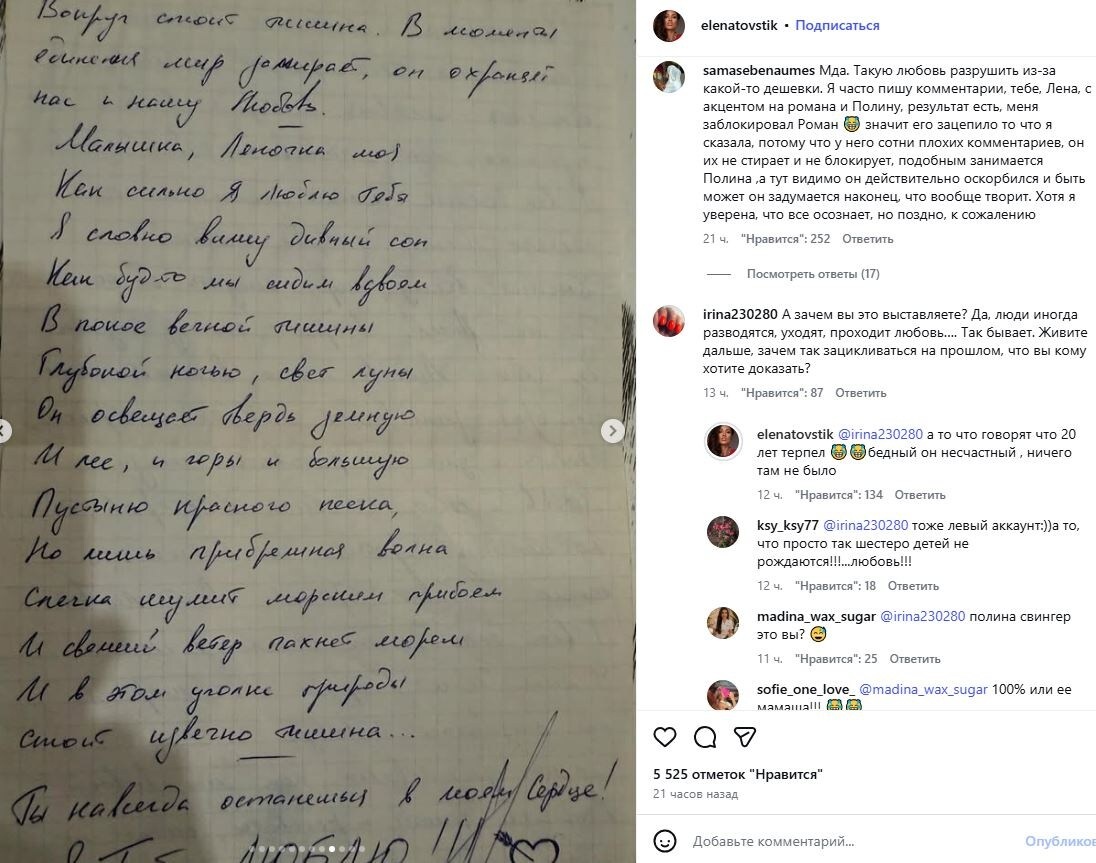 Вокруг стоит тишина. В моменты
единения мир замирает, он охраняет
нас и нашу Любовь.
Малышка, Леночка моя
Как сильно Я люблю Тебя
Я словно вижу дивный сон
Как будто мы сидим вдвоем
В покое вечной тишины
Глубокой ночью, свет луны
Он освещает твердь земную
И лес, и горы и большую
Пустыню красного песка,
Но лишь прибрежная волна
Слегка шумит морским прибоем
И свежий ветер пахнет морем
И в этом уголке природы
стоит извечно тишина...
Ты навсегда останешься в моем Сердце!
elenatovstik • Подписаться
samasebenaumes Мда. Такую любовь разрушить из-за
какой-то дешевки. Я часто пишу комментарии, тебе, Лена, с
акцентом на романа и Полину, результат есть, меня
заблокировал Роман 😹 значит его зацепило то что я
сказала, потому что у него сотни плохих комментариев, он
их не стирает и не блокирует, подобным занимается
Полина ,а тут видимо он действительно оскорбился и быть
может он задумается наконец, что вообще творит. Хотя я
уверена, что все осознает, но поздно, к сожалению
21 ч. "Нравится": 252 Ответить
Посмотреть ответы (17)
irina230280 А зачем вы это выставляете? Да, люди иногда
разводятся, уходят, проходит любовь.... Так бывает. Живите
дальше, зачем так зацикливаться на прошлом, что вы кому
хотите доказать?
13 ч. "Нравится": 87 Ответить
elenatovstik @irina230280 а то что говорят что 20
лет терпел 😹😹бедный он несчастный , ничего
там не было
12 ч. "Нравится": 134 Ответить
ksy_ksy77 @irina230280 тоже левый аккаунт:))а то,
что просто так шестеро детей не
рождаются!!!...любовь!!!
12 ч. "Нравится": 18 Ответить
madina_wax_sugar @irina230280 полина свингер
это вы? 😅
11 ч. "Нравится": 25 Ответить
sofie_one_love_ @madina_wax_sugar 100% или ее
мамаша!!! 😹😹
5 525 отметок "Нравится"
21 часов назад
Добавьте комментарий...
Опубликов